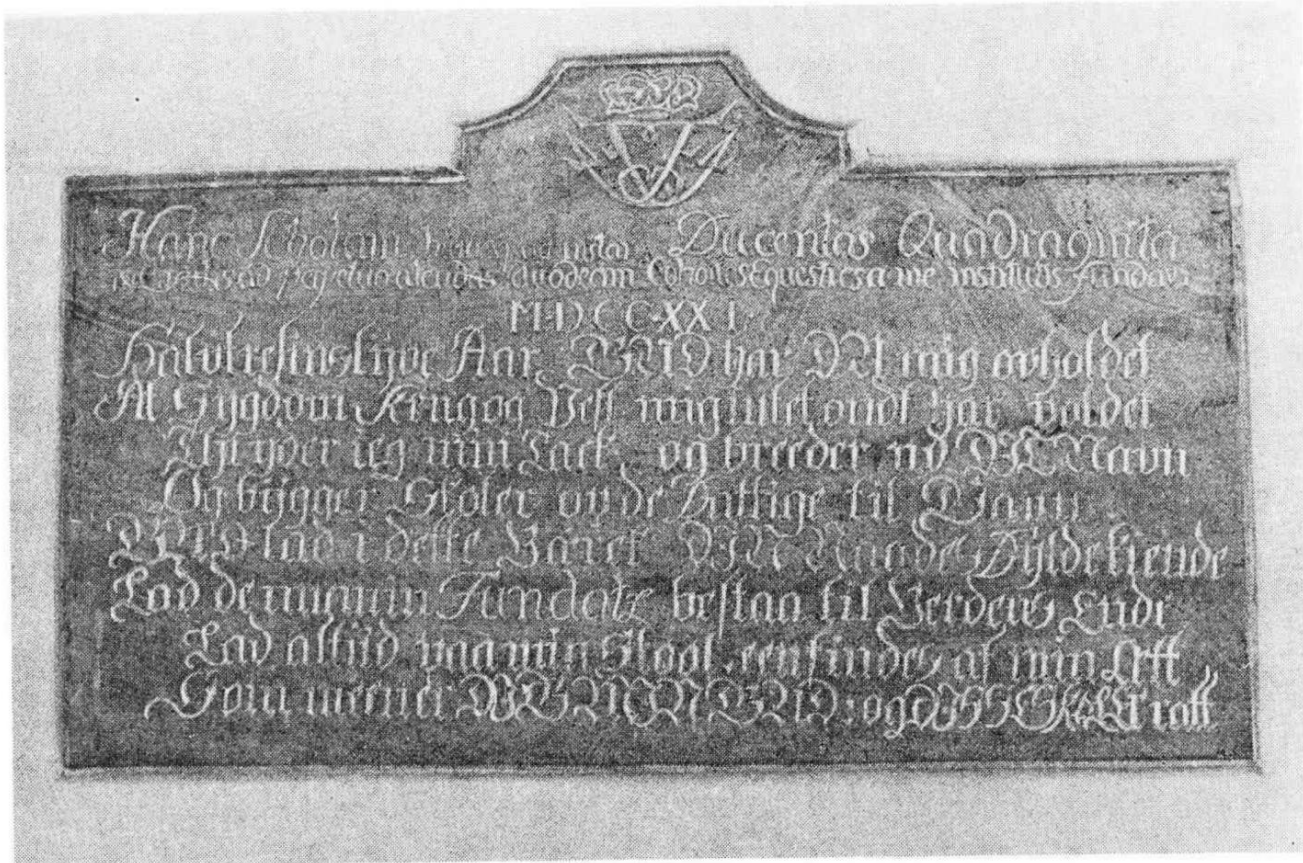 Hanc Scholam instar Ducentas Quadraginta
duodecim Scholis equestribus a me institutis fundavi
M·D C C·XX I·
Halvtresinstyve Aar GUD har DU mig opholdet
At Sygdom Krig og Pest mig intet ondt har voldet
Thi yder ieg min Tack og breeder ud DIT Navn
Og bygger Skoler op de Fattige til Gavn
GUD lad i dette Verck DIN Naade Fylde kiende
Lad denne min Fundatz bestaa til Verdens Ende
Lad altiid paa min Skool een findes af min Ætt
Som meener DIG MIN GUD og DISSE SKOLER rætt